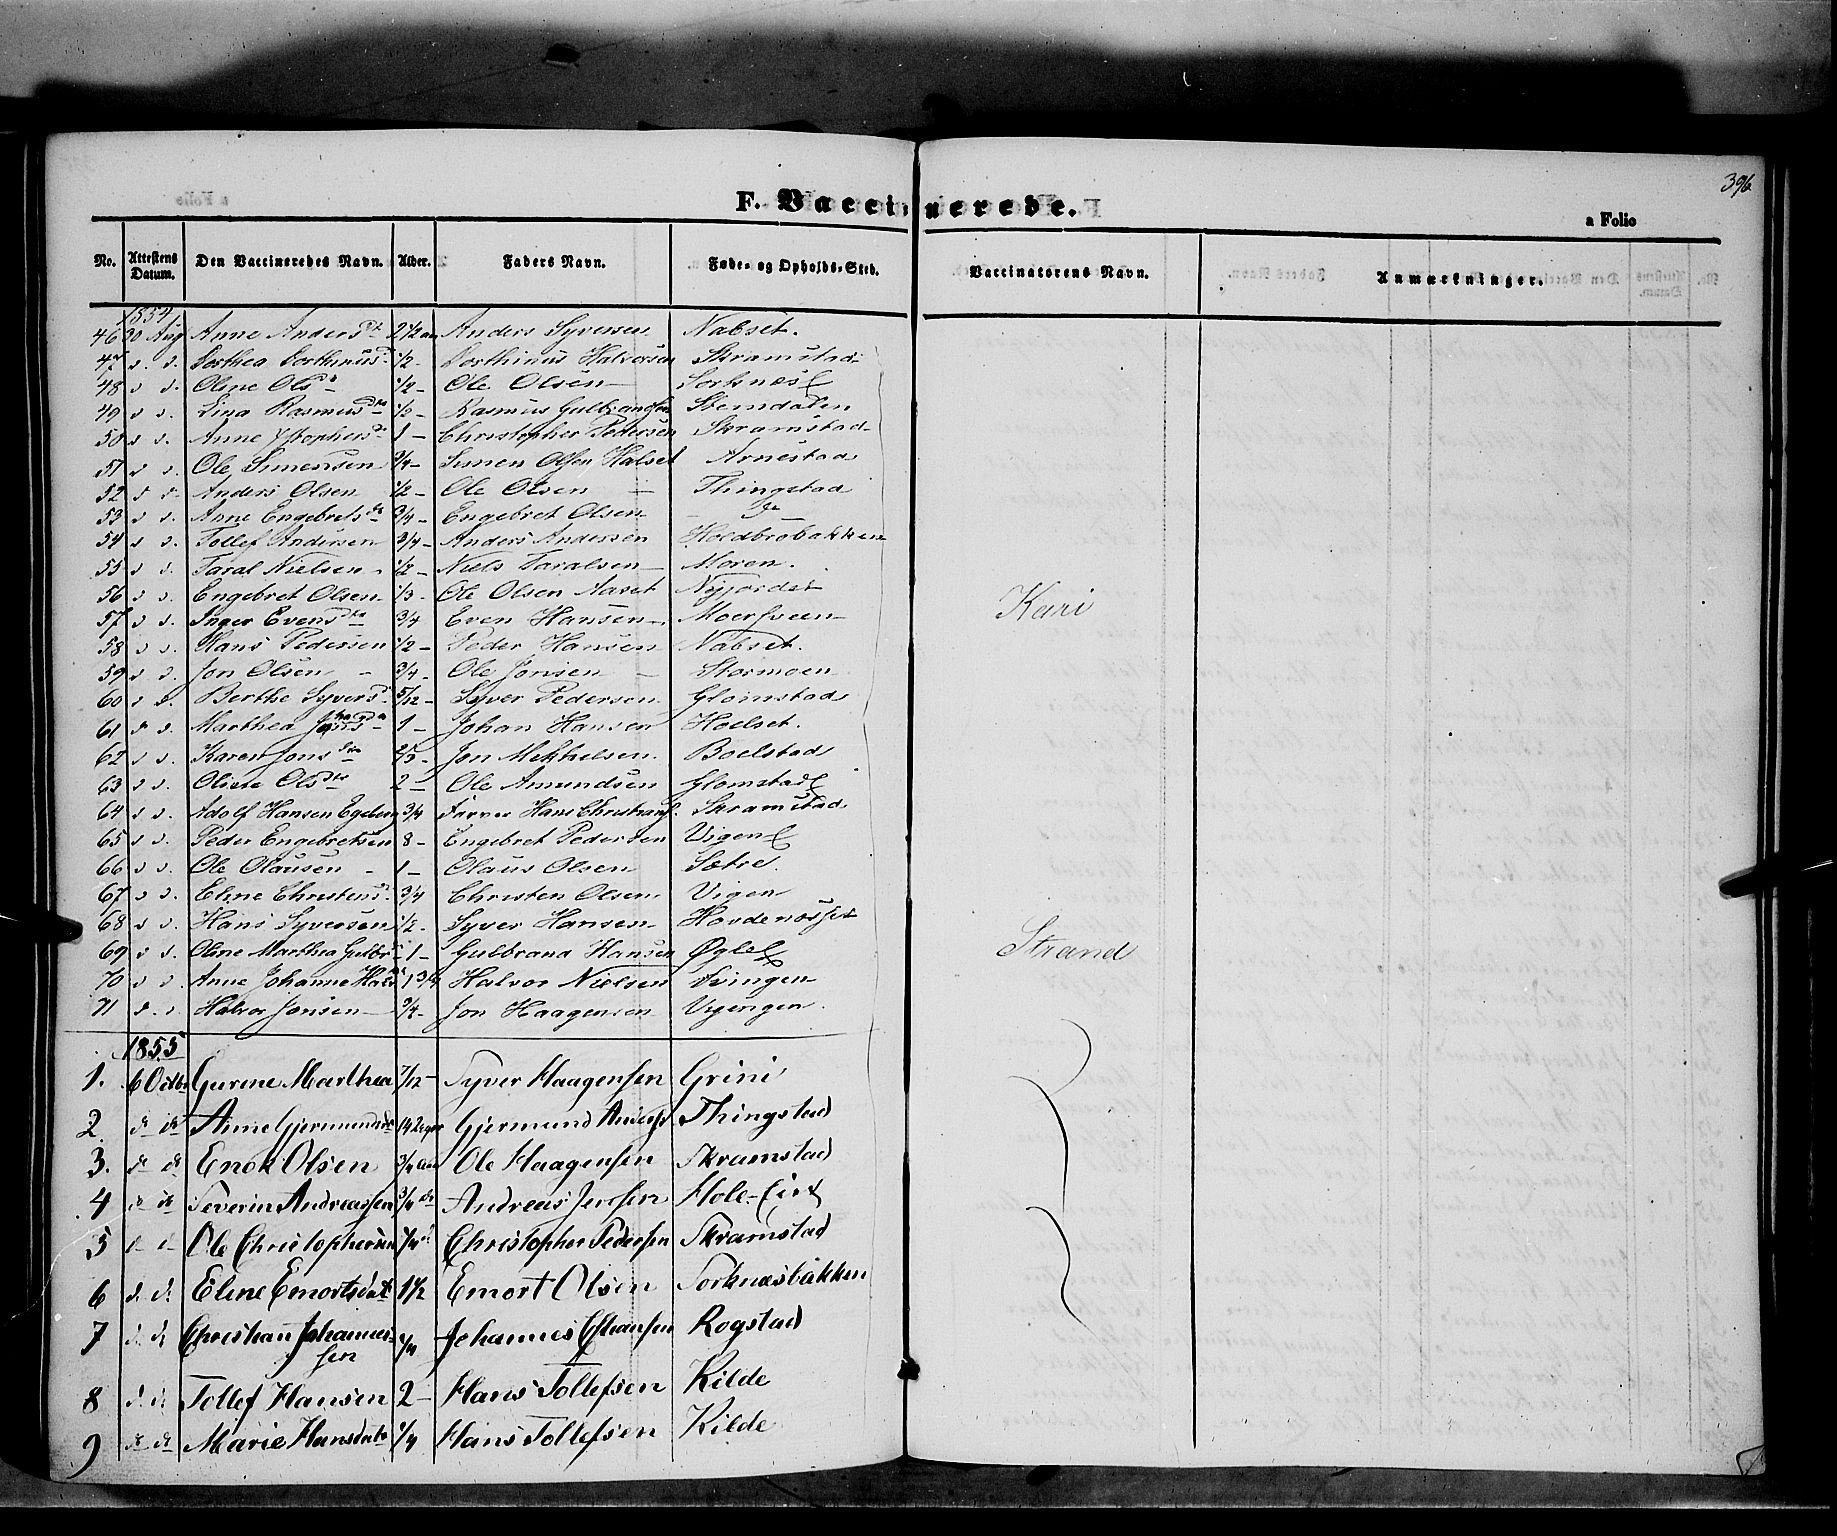 396
F. Vaccinerede.
a Folio
No. Attestens Datum. Den Vaccineredes Navn. Alder. Faders Navn. Føde- og Opholds-Sted. Vaccinatorens Navn. Anmærkninger.
1854
46 30 Aug Anne Andersdt 2 1/2 aar Anders Syversen Nabset.
47 d. d. Dorthea Dorthinusd. 1/2 - Dorthinus Halvorsen Skramstad
48 d d. Oline Olsd. 1/2 - Ole Olsen - Sorknæs
49 d d. Lina Rasmusdtr 1/2 - Rasmus Gulbrandsen Stemdalen
50 d d. Anne Xstophersd. 1 - Christopher Pedersen Skramstad
51 d d. Ole Simensen 3/4 - Simen Olsen Halset Arnestad
52 d d. Anders Olsen 1/2 - Ole Olsen - Thingstad
53 d d. Anne Engebretsdr 3/4 - Engebret Olsen - do
54 d d. Tollef Andersen 3/4 - Anders Andersen Holdbrobakken
55 d d. Taral Nielsen - 1/2 - Niels Taralsen Moren.
56 d d. Engebret Olsen 1/3 - Ole Olsen Aaset Nyjordet
57 d d. Inger Evensdtr 3/4 Even Hansen - Kari
58 d d. Hans Pedersen 1/2 - Peder Hansen Nabset.
59 d d. Jon Olsen - 3/4 - Ole Jonsen - Stormoen
60 d d. Berthe Syversd. 5/12 - Syver Pedersen Glomstad
61 d d. Marthea 1 - Johan Hansen Hoelset.
62 d d. Karen Jonsdtr 2/5 - Jon Mikkelsen. Boelstad
63 d d. Olsdtr 2 - Ole Amundsen Glomstad
64 d d. Adolf Hansen Egeberg 3/4 Hans Christians. Skramstad
65 d d. Peder Engebretsen 8 - Engebret Pedersen Vigen
66 d d. Ole Olausen - 1 - Olaus Olsen Sætre.
67 d d. Eline Christensd. 3/4 Christen Olsen Vigen
68 d d. Hans Syversen 1/2 - Syver Hansen Hovdenæsset
69 d d. Oline Marthea Gulbr. 1 - Gulbrand Hansen Øgle Strand
70 d d. Anne Johanne Halv. 1 3/4 Halvor Nielsen
71 d. d Halvor Jonsen - 3/4 - Jon Haagensen
1855
1. 6 Octbr Gurine Marthea 7/12 - Syver Haagensen Grini
2. d d Anne Gjermundsdr Gjermund Anders Thingstad
3. d d Olsen 3/4 aar Ole Haagensen Skramstad
4 d d Severin Andreassen 3/4 do Andreas Jensen Hole-
5 d d Ole Christophersen Christopher Pedersen Skramstad
6 d. d. Eline Emortsdatr 1 1/2 Emort Olsen Sorknæsbakken
7 d. d Christian Johannes-
sen 1/4 Johannes Rogstad
8 d. d. Tollef Hansen 2 - Hans Tollefsen Kilde
9 d d Marie Hansdatr 1/4 Hans Tollefsen Kilde